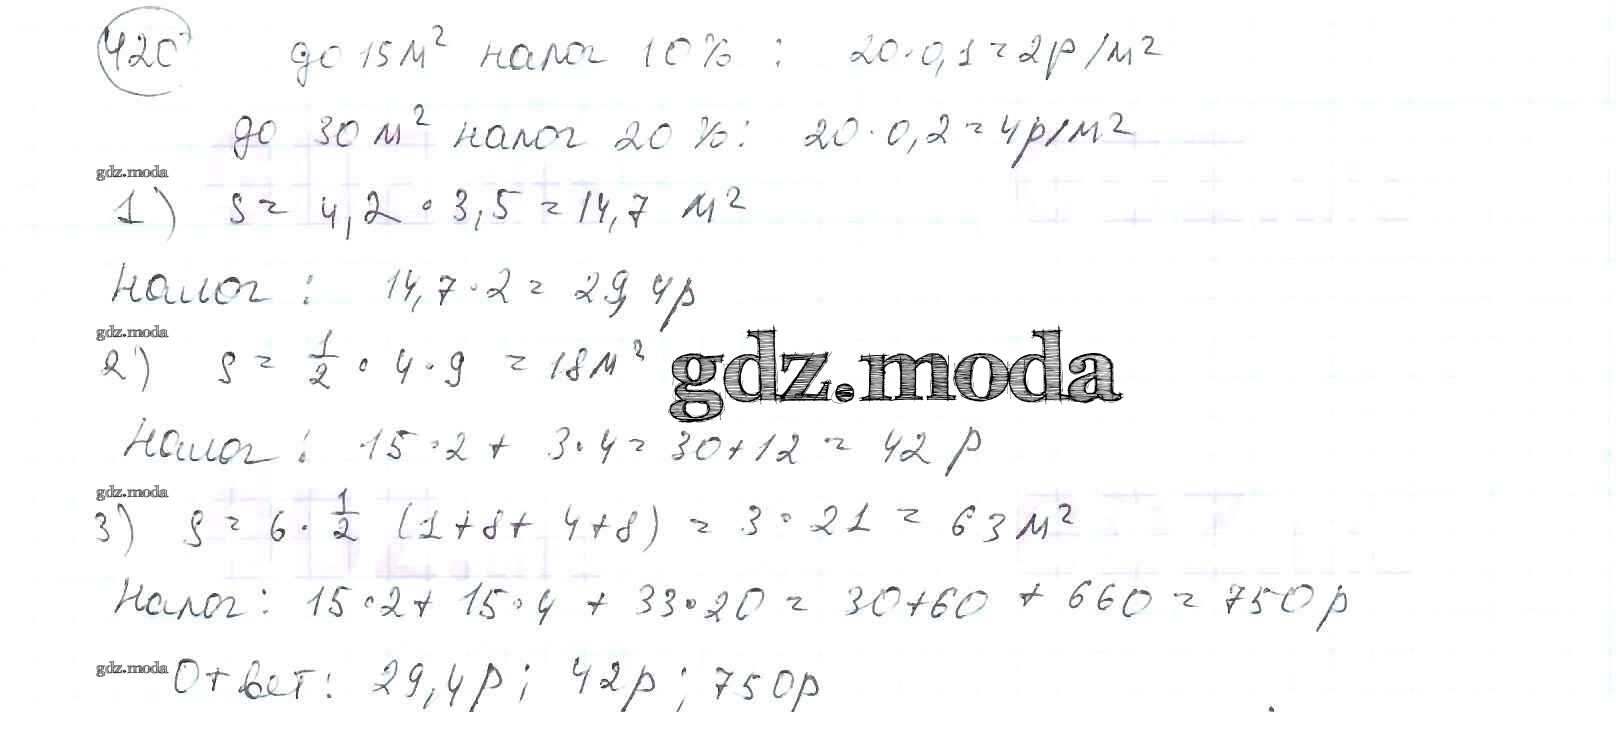 420 до 15 м² налог 10% : 20·0,1=2р/м²
до 30 м² налог 20%: 20·0,2=4р/м²
gdz.moda
1) S= 4,2·3,5=14,7 м²
Налог: 14,7·2= 29,4р
gdz.moda
2) S= 1/2·4·9 = 18м²
gdz.moda
Налог: 15·2+ 3·4=30+12=42 р
gdz.moda
3) S= 6·1/2 (1+8+4+8) = 3·21= 63 м²
Налог: 15·2+15·4+33·20=30+60+660=750р
gdz.moda
Ответ: 29,4р; 42р; 750р